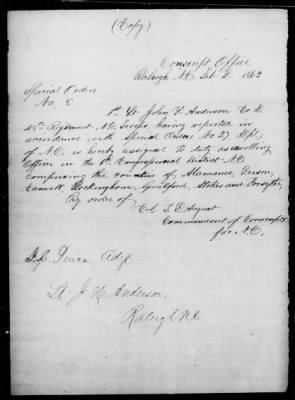 (Copy)
Conscript Office
Raleigh N.C. Feb 2 1863
Special Orders
No. 8
1st Lt. John H. Anderson Co K
48th Regiment N.C. Troops, having reported in
accordance with Special Orders No 27 Dept.
of N.C. is hereby assigned to duty as enrolling
Officer in the 6th Congressional District N.C.
comprising the counties of Alamance, Person,
Caswell, Rockingham, Guilford, Stokes and Forsythe.
By order of
Col T. P. August
Commandant of Conscripts
for N.C.
Adjt
Lt J H Anderson
Raleigh NC